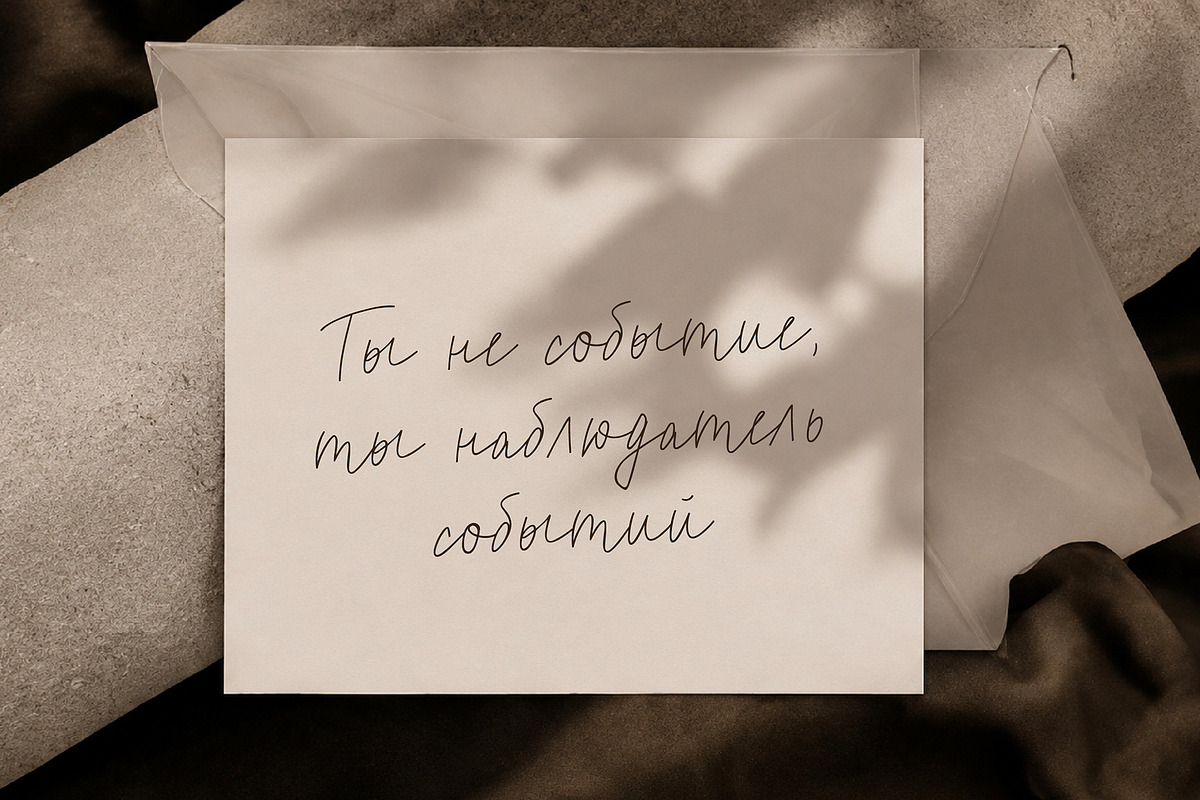 Ты не событие,
ты наблюдатель
событий